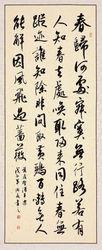 春歸何處寂寞無行路若有
人知春去處喚取歸來同住春無
蹤迹誰知除非問取黃鸝百囀無人
能解因風飛過薔薇